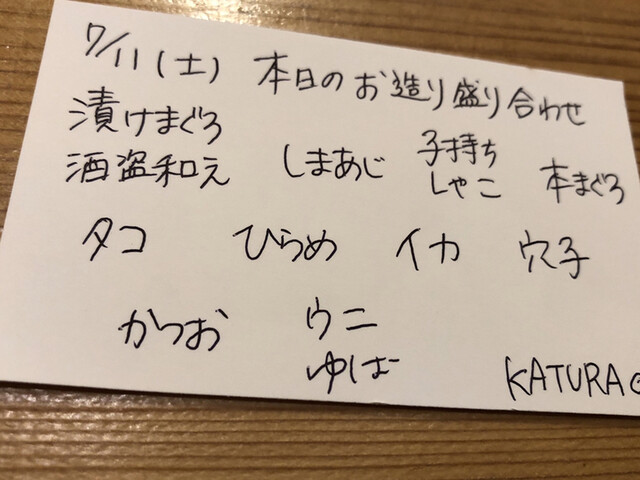 7/11(土) 本日のお造り盛り合わせ
漬けまぐろ
酒盗和え
しまあじ
子持ち
しゃこ
本まぐろ
タコ ひらめ イカ 穴子
かつお
ウニ
ゆば
KATURA